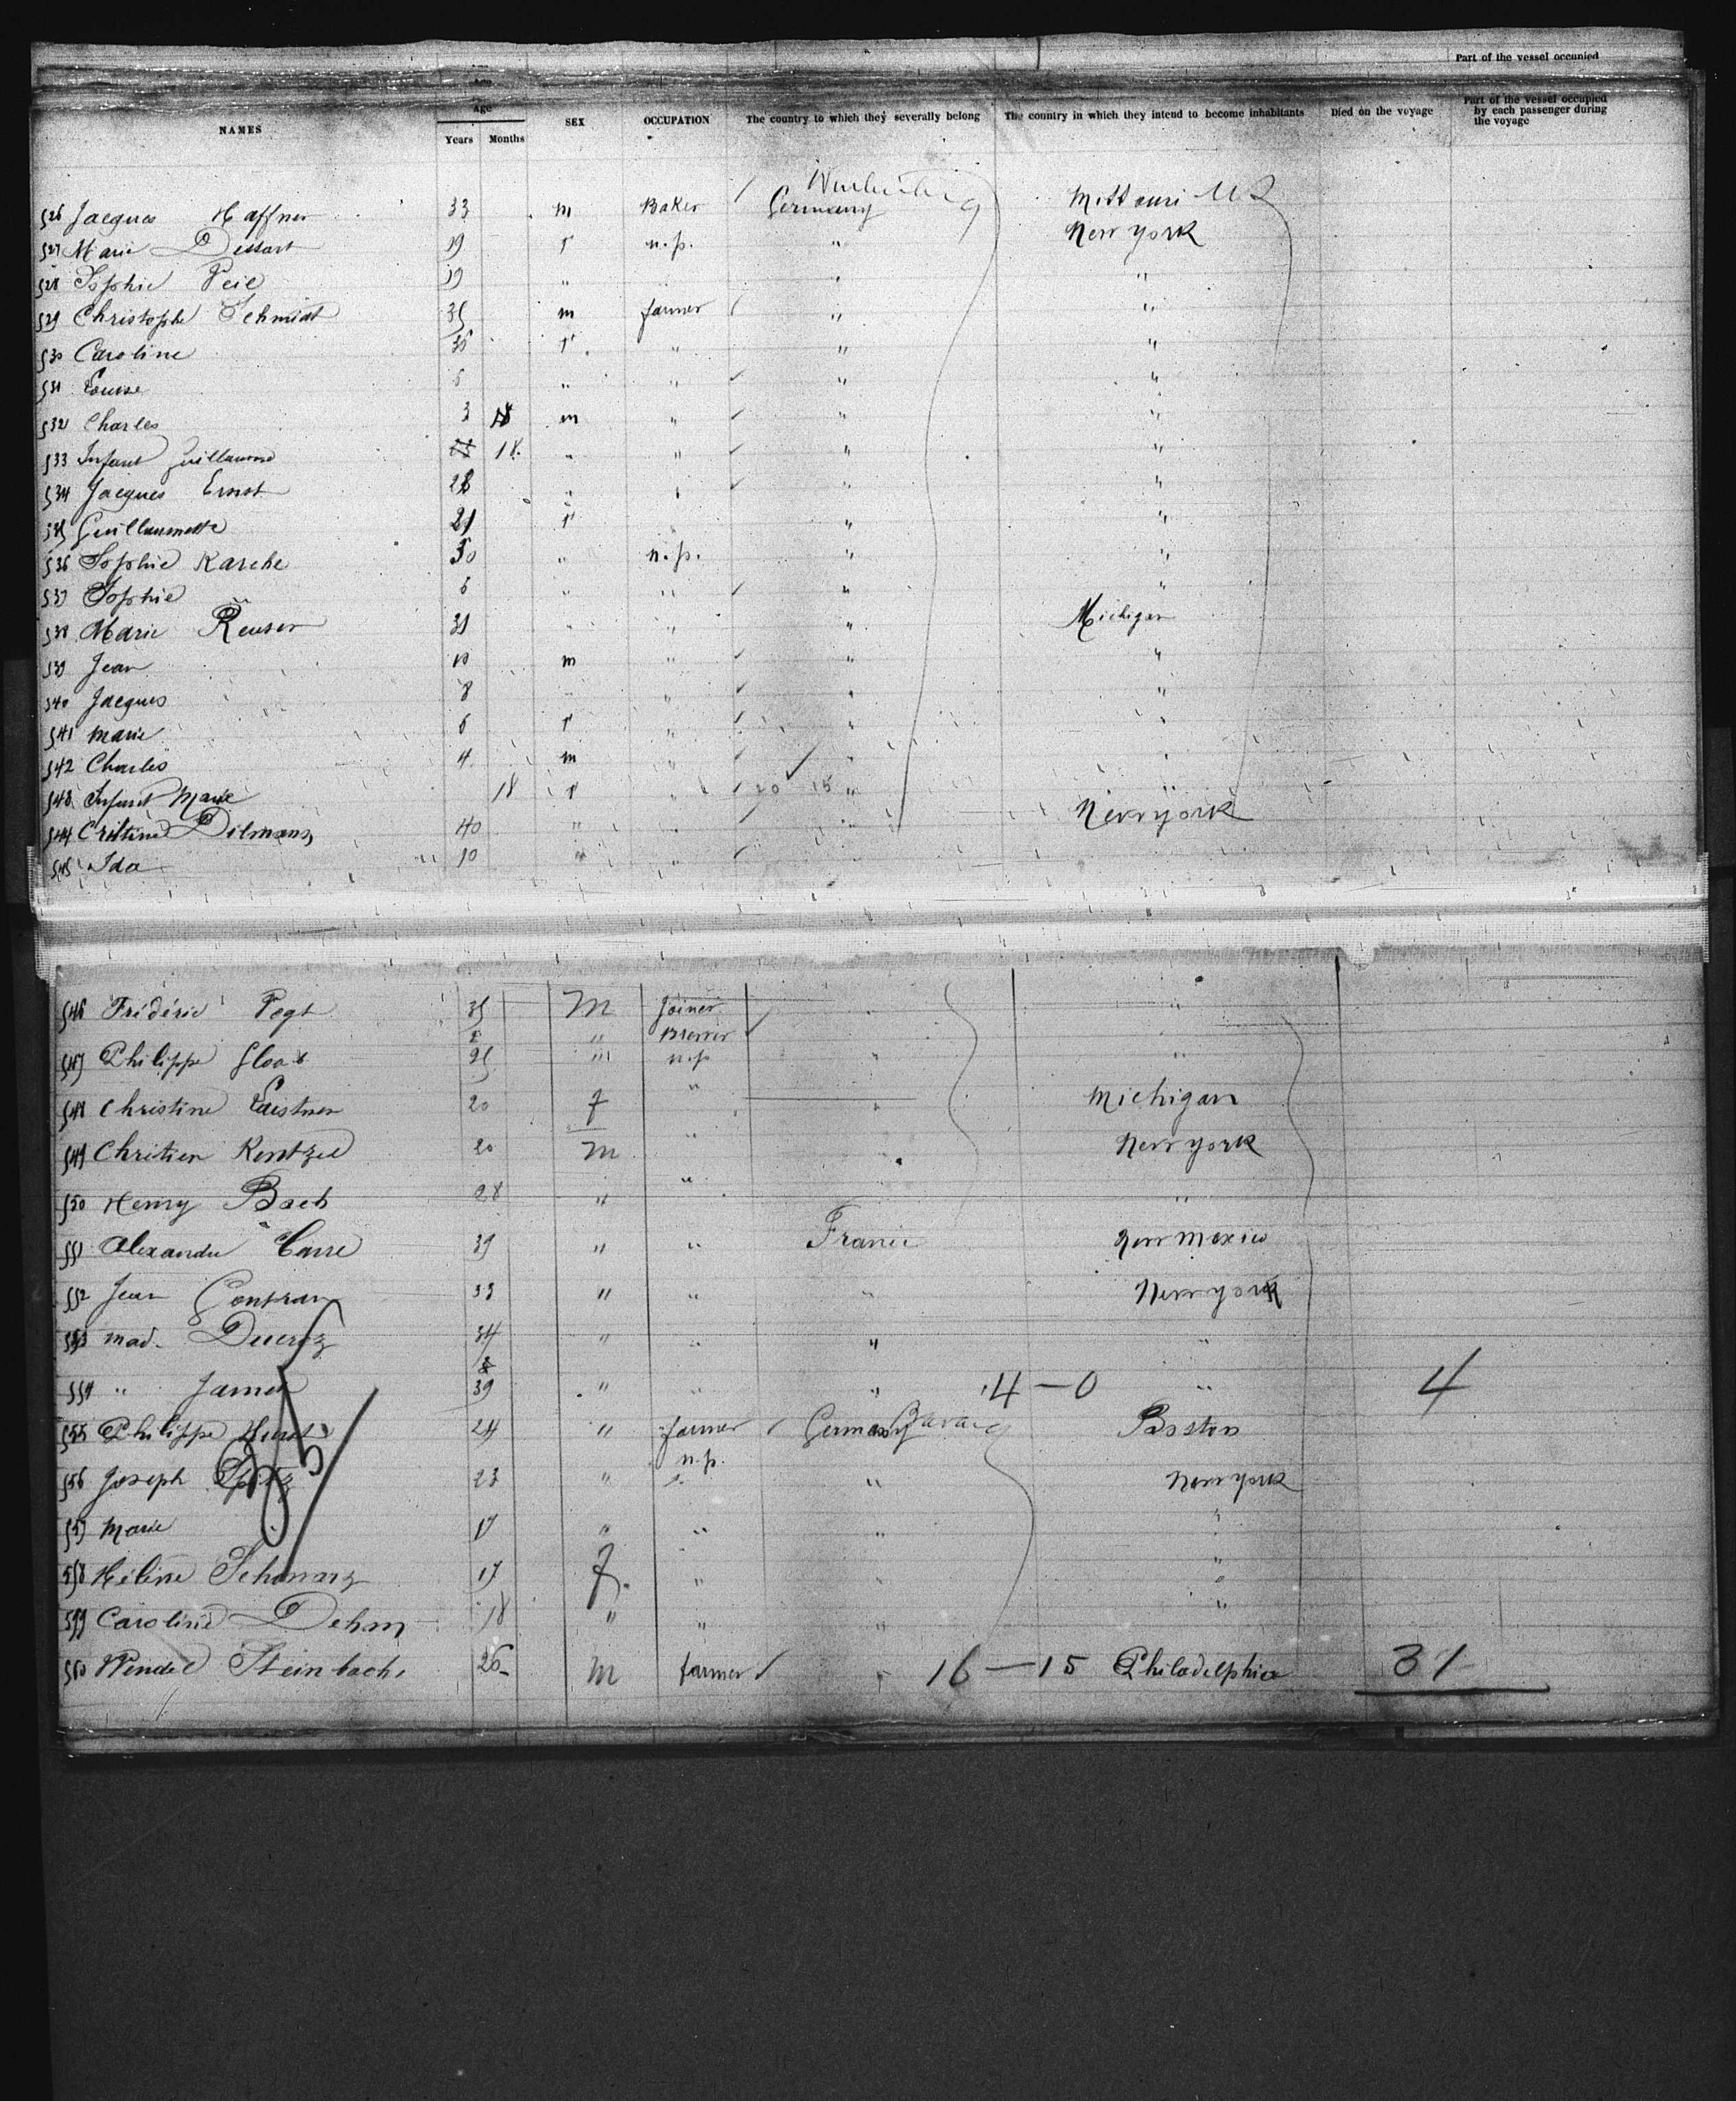 Part of the vessel occupied
NAMES Age Years Months SEX OCCUPATION The country to which they severally belong The country in which they intend to become inhabitants Died on the voyage Part of the vessel occupied by each passenger during the voyage
526 Jacques Haffner 33 m Baker Germany Missouri U S
527 Marie 19 f n.p. " New york
528 Sophie 19 " " "
529 Christophe Schmidt 35 m farmer " "
530 Caroline 35 f " " "
531 Louise 5 " " " "
532 Charles 3 m " " "
533 Infant Guillaume 18 " " " "
534 Jacques Ernst 28 " " " "
535 Guillaumette 21 f " "
536 Sophie Karche 30 " n.p. " "
537 Sophie 5 " " " "
538 Marie Reuser 31 " " " Michigan
539 Jean 10 m " " "
540 Jacques 8 " " " "
541 Marie 6 f " " "
542 Charles 4 m " " "
543 Infant Marie 18 f " 20 15 "
544 Cristine Dilmann 40 " " " New york
545 Ida 10 " "
546 Frédéric Vogt 35 M Joiner "
" Brewer
547 Philippe 25 m n.p " "
548 Christine Leistner 20 f " " Michigan
549 Chretien Kentzel 20 M " New york
550 Henry Bach 28 " " "
551 Alexandre Carré 39 " " France New Mexico
552 Jean Contran 33 " " " New york
553 Mad. Ducroz 34 " " " "
554 " Jamet 39 " " " 4 — 0 " 4
555 Philippe 24 " farmer Germany Bavaria Boston
n.p.
556 Joseph 23 " " " New york
557 Marie 17 " " " "
558 Hélène Schwarz 17 f. " " "
559 Caroline Dehm 18 " " " "
560 Wendel Steinbach 26 M farmer " 16 — 15 Philadelphia 31